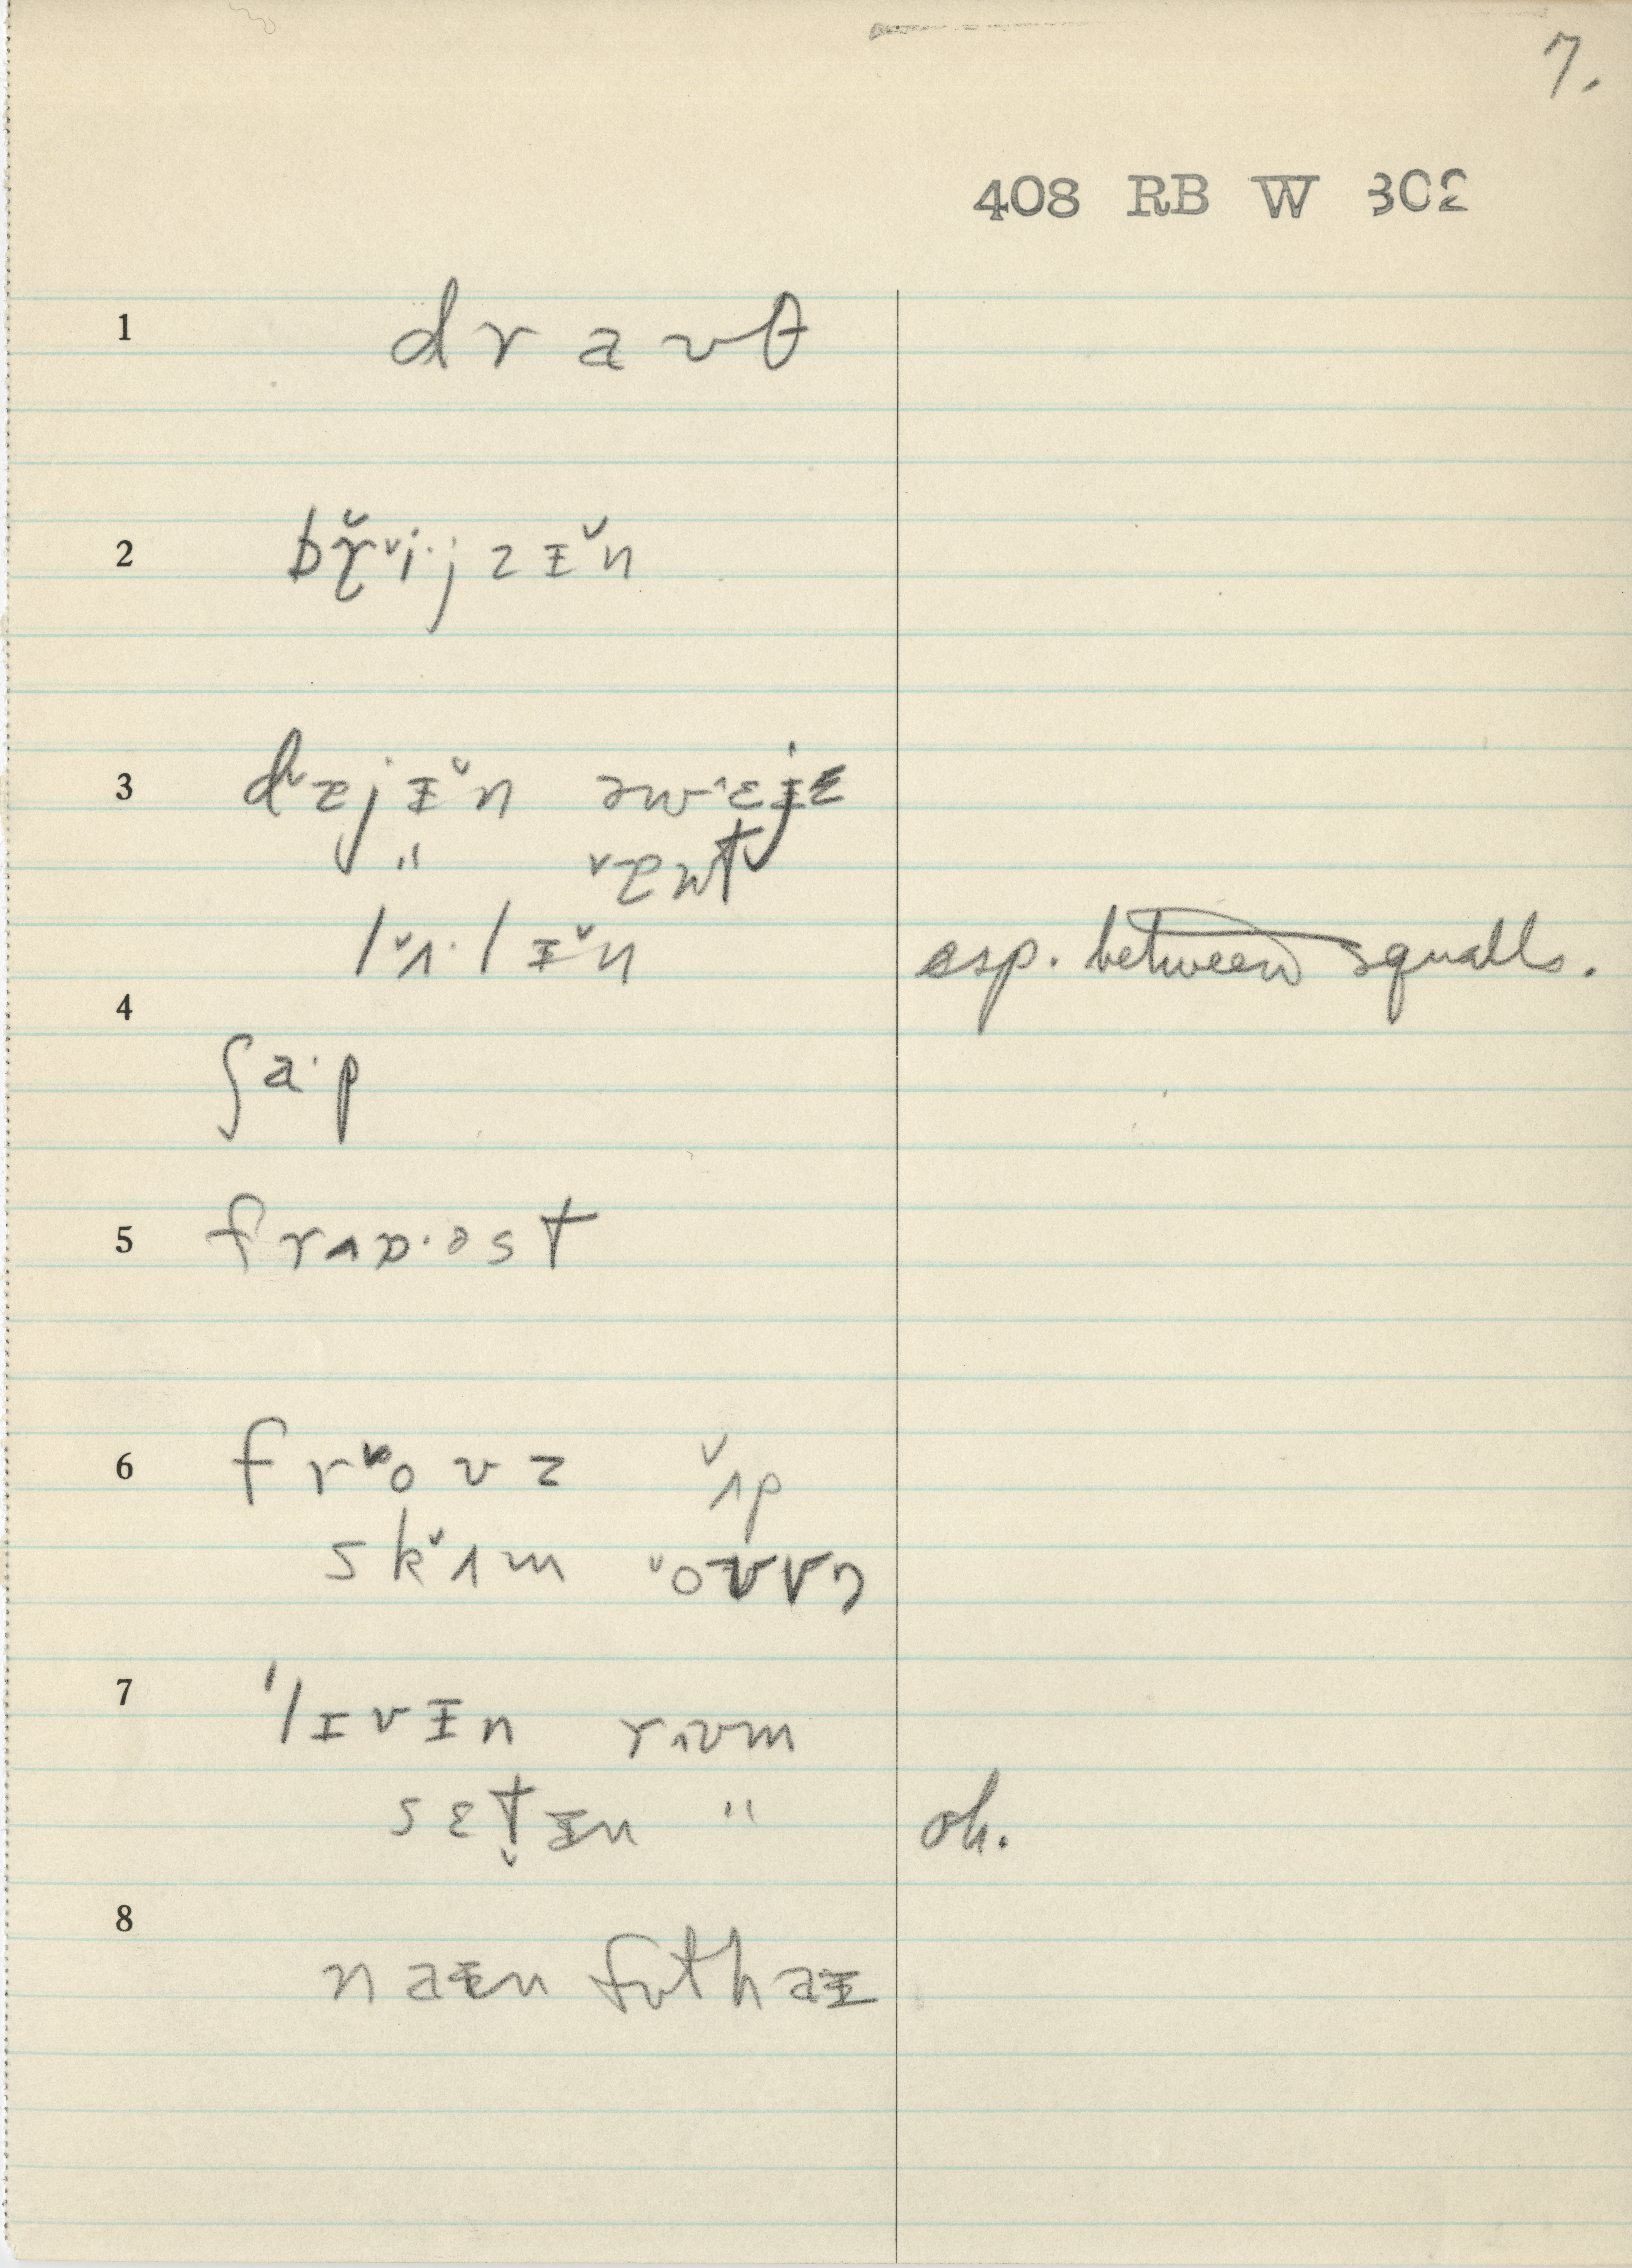 7.
408 RB W 302
1 d r a ʊ θ
2 bɽ̆ˇi·j z ɪ̵ˇn
3 dˇɛjɪ̵ˇn əwˆɛjɛ
" ˇɛʊt
lˇʌ·lɪ̵ˇn esp. between squalls.
4
ʃa·p
5 frʌɒ·əst
6 frˇoʊz ˇʌp
skˇɪm ˇoʊvə
7 ˈlɪvɪ̵n rɪʊm
sɛt̬ɪ̵n " oh.
8
naɪ̵n fʊthaɪ̵